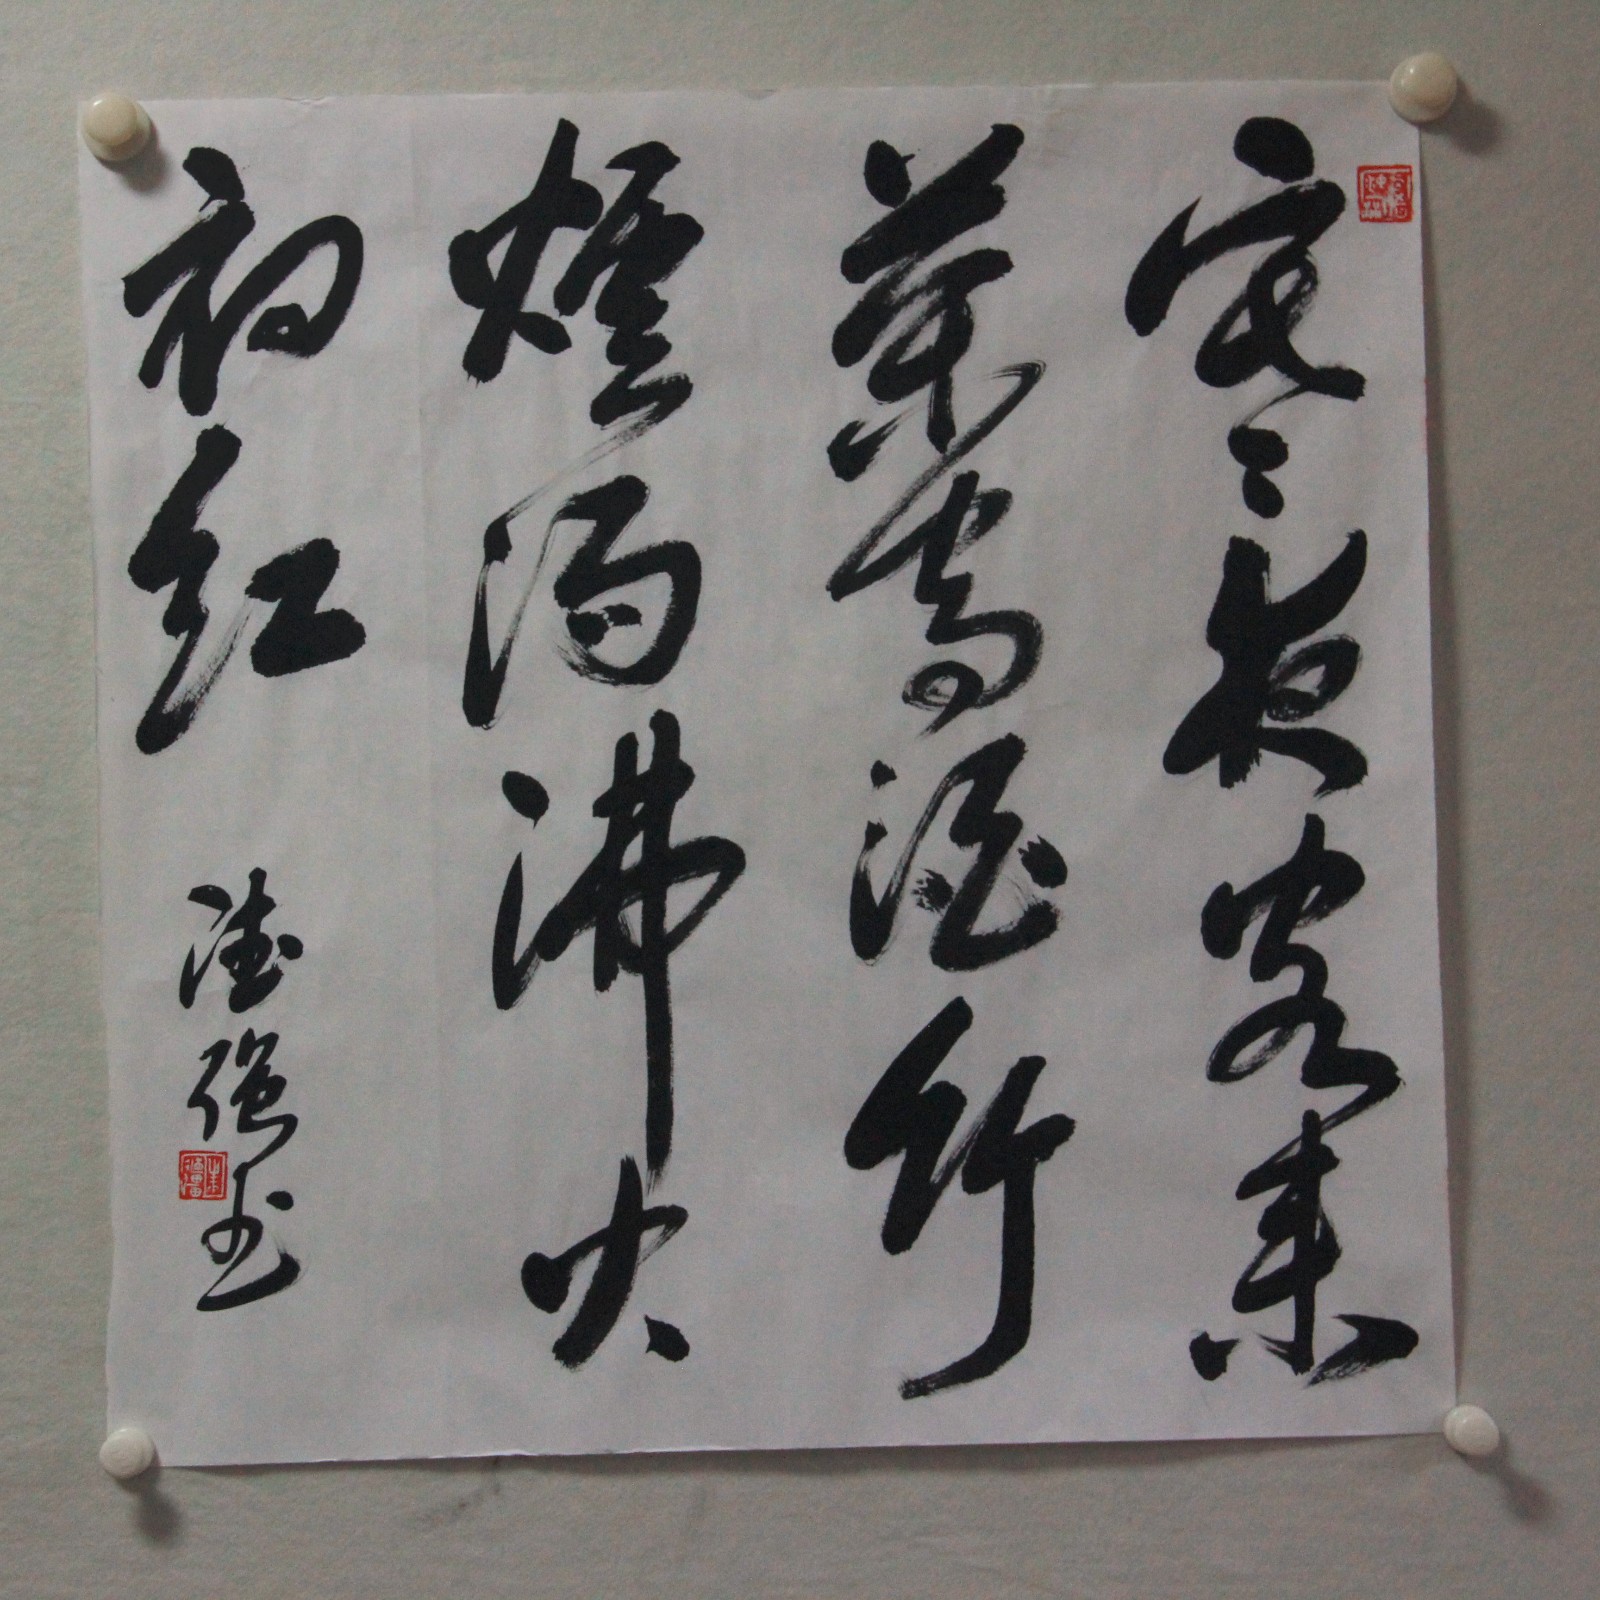 寒夜客来
茶当酒竹
炉汤沸火
初红
德强书